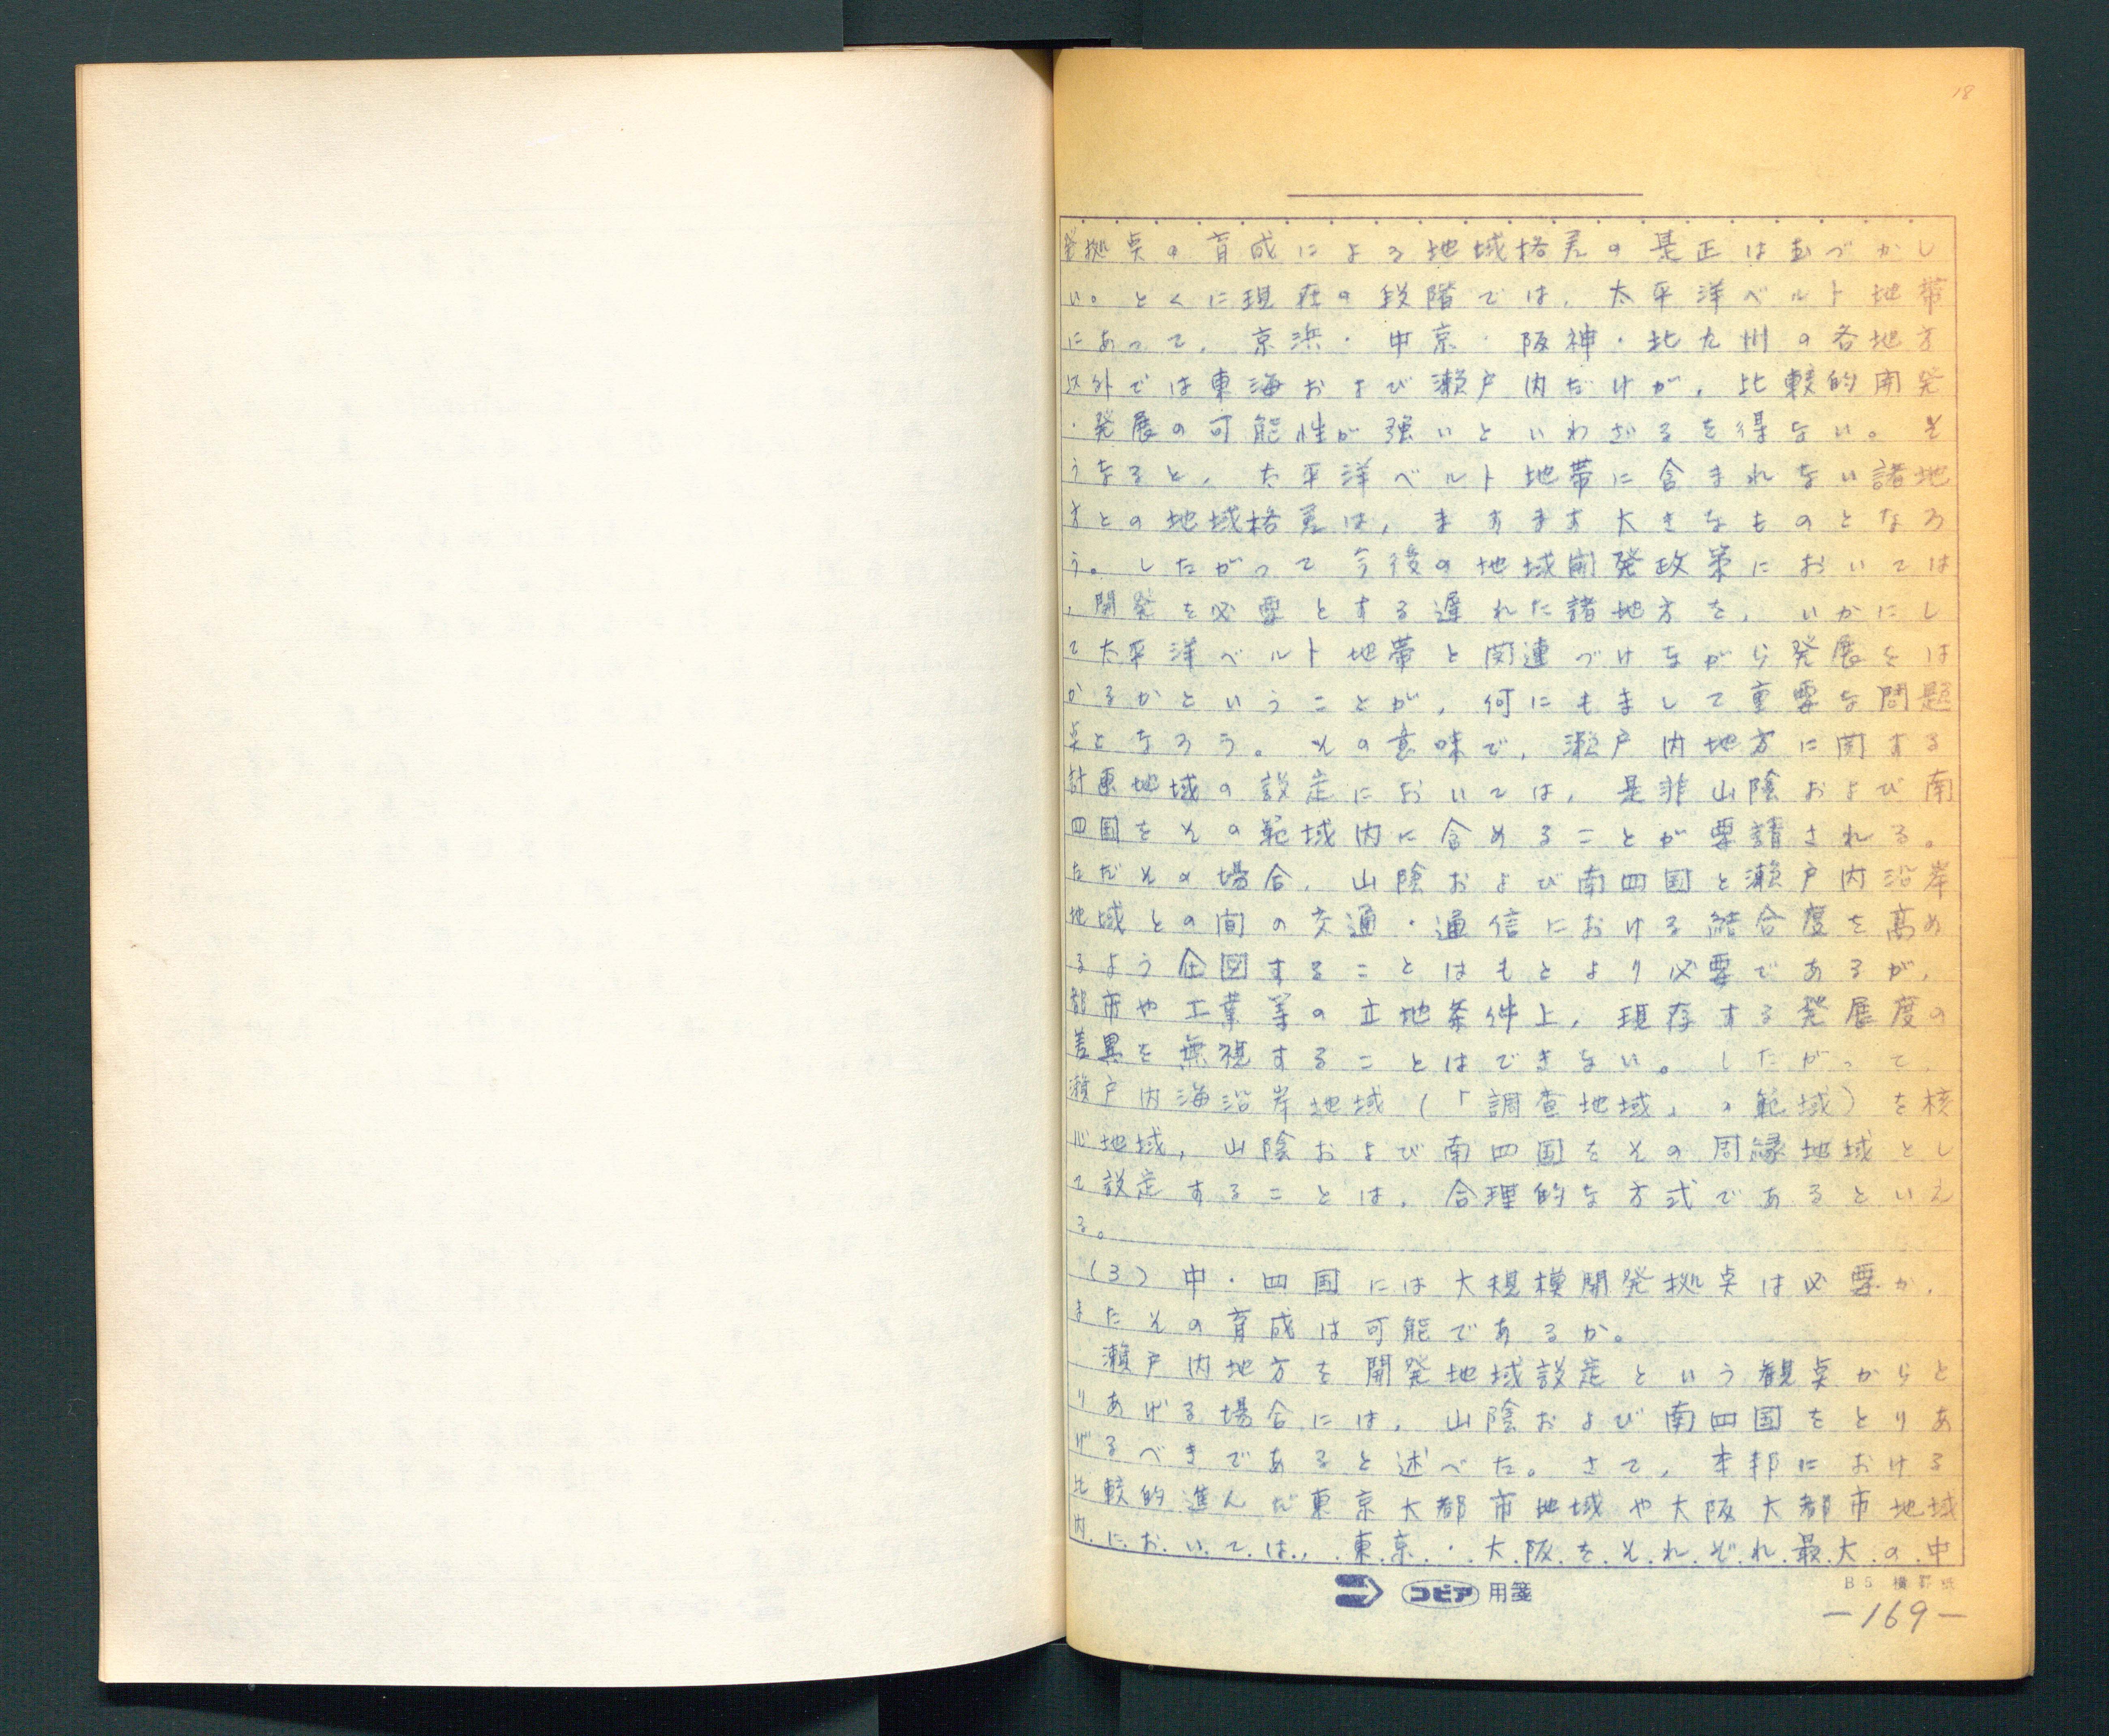 18
発拠点の育成による地域格差の是正はむづかし
い。とくに現在の段階では，太平洋ベルト地帯
にあって，京浜・中京・阪神・北九州の各地方
以外では東海および瀬戸内だけが，比較的開発
・発展の可能性が強いといわざるを得ない。そ
うなると，太平洋ベルト地帯に含まれない諸地
方との地域格差は，ますます大きなものとなろ
う。したがって今後の地域開発政策においては
，開発を必要とする遅れた諸地方を，いかにし
て太平洋ベルト地帯と関連づけながら発展をは
かるかということが，何にもまして重要な問題
点となろう。その意味で，瀬戸内地方に関する
計画地域の設定においては，是非山陰および南
四国をその範域内に含めることが要請される。
ただその場合，山陰および南四国と瀬戸内沿岸
地域との間の交通・通信における結合度を高め
るよう企図することはもとより必要であるが，
都市や工業等の立地条件上，現存する発展度の
差異を無視することはできない。したがって，
瀬戸内海沿岸地域（「調査地域」の範域）を核
心地域，山陰および南四国をその周縁地域とし
て設定することは，合理的な方式であるといえ
る。
（3）中・四国には大規模開発拠点は必要か，
またその育成は可能であるか。
瀬戸内地方を開発地域設定という観点からと
りあげる場合には，山陰および南四国をとりあ
げるべきであると述べた。さて，本邦における
比較的進んだ東京大都市地域や大阪大都市地域
内においては，東京・大阪をそれぞれ最大の中
コピア用箋
B5 横罫紙
－169－